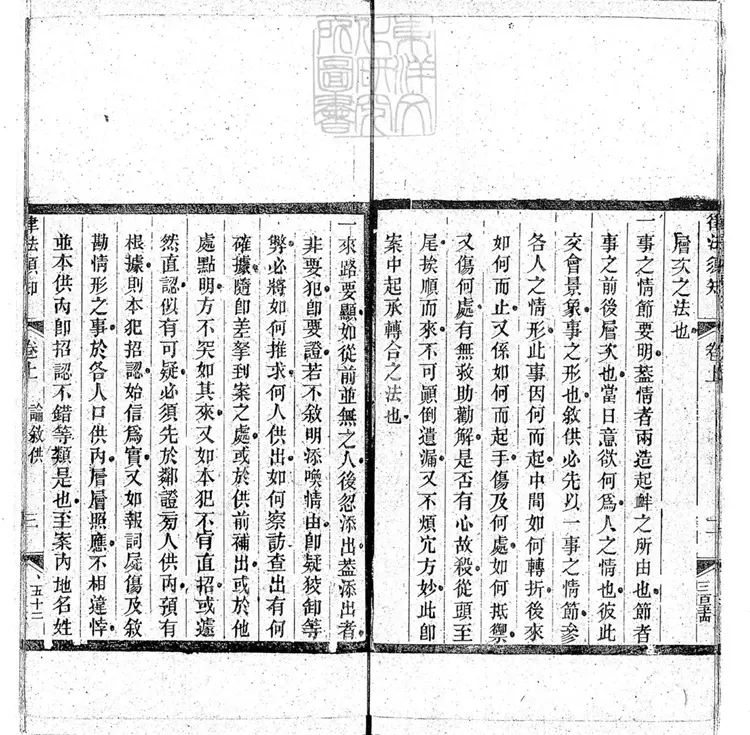 東洋文
化研究
所圖書
律法須知
卷上
二
層次之法也
一事之情節要明葢情者兩造起衅之所由也節者
事之前後層次也當日意欲何爲人之情也彼此
交會景象事之形也敘供必先以一事之情節參
各人之情形此事因何而起中間如何轉折後來
如何而止又係如何而起手傷及何處如何抵禦
又傷何處有無救助勸解是否有心故殺從頭至
尾挨順而來不可顚倒遺漏又不煩宂方妙此卽
案中起承轉合之法也
一來路要顯如從前並無之人後忽添出葢添出者
非要犯卽要證若不敘明添喚情由卽疑狡卸等
獘必將如何推求何人供出如何察訪查出有何
確據隨卽差拏到案之處或於供前補出或於他
處點明方不突如其來又如本犯不肎直招或遽
然直認似有可疑必須先於鄰證旁人供內預有
根據則本犯招認始信爲實又如報詞屍傷及敘
勘情形之事於各人口供內層層照應不相違悖
並本供內卽招認不錯等類是也至案內地名姓
律法須知
卷上
論敘供
三
五十二